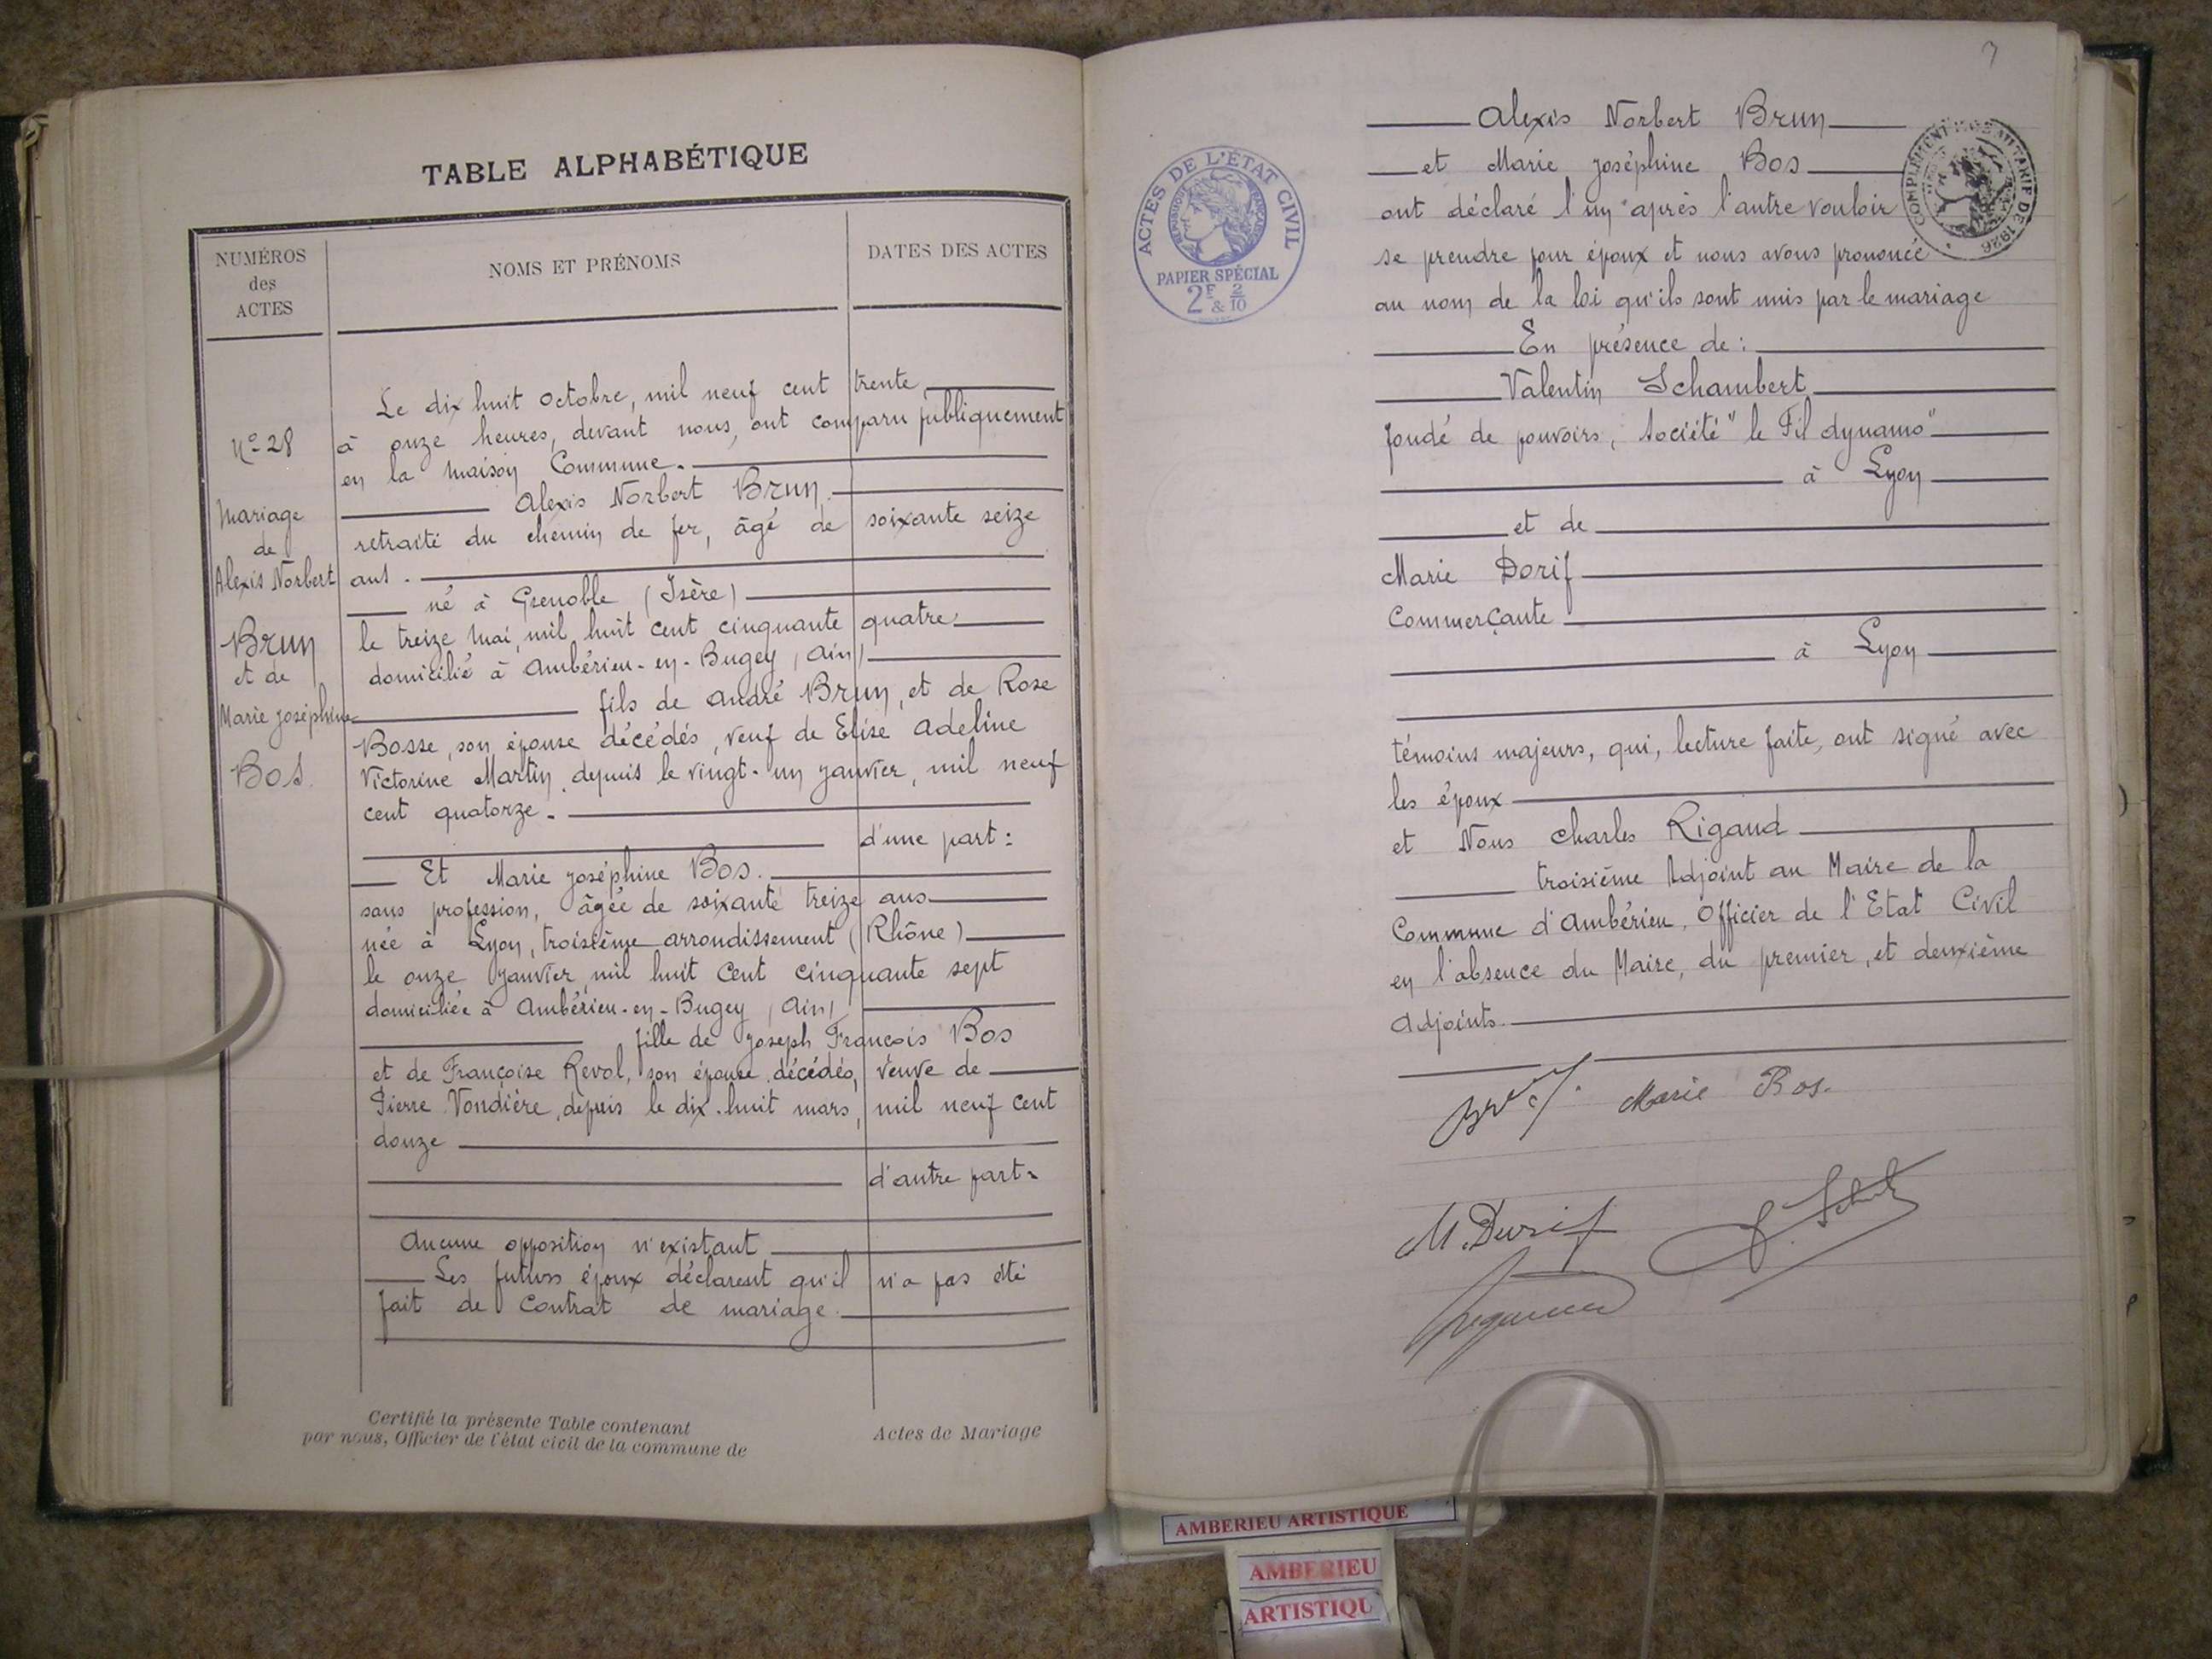 TABLE ALPHABÉTIQUE
NUMÉROS
des
ACTES
NOMS ET PRÉNOMS
DATES DES ACTES
Nº 28
Mariage
de
Alexis Norbert
Brun
et de
Marie Joséphine
Bos.
Le dix huit Octobre, mil neuf cent trente
à onze heures, devant nous, ont comparu publiquement
en la Maison Commune.
Alexis Norbert Brun.
retraité du chemin de fer, âgé de soixante seize
ans.
né à Grenoble (Isère)
le treize Mai, mil huit cent cinquante quatre
domicilié à Ambérieu-en-Bugey (Ain)
fils de André Brun, et de Rose
Bosse, son épouse décédés, veuf de Elise Adeline
Victorine Martin, depuis le vingt-un janvier, mil neuf
cent quatorze.
d'une part:
Et Marie Joséphine Bos.
sans profession, âgée de soixante treize ans
née à Lyon, troisième arrondissement (Rhône)
le onze janvier, mil huit cent cinquante sept
domiciliée à Ambérieu-en-Bugey (Ain)
fille de Joseph François Bos
et de Françoise Revol, son épouse, décédés, veuve de
Pierre Vondière, depuis le dix-huit mars, mil neuf cent
douze
d'autre part.
Aucune opposition n'existant
Les futurs époux déclarent qu'il n'a pas été
fait de contrat de mariage.
Certifié la présente Table contenant
Actes de Mariage
par nous, Officier de l'état civil de la commune de
7
ACTES DE L'ÉTAT CIVIL
RÉPUBLIQUE FRANÇAISE
PAPIER SPÉCIAL
2F & 2/10
COMPLÉMENT AU TARIF DE 1926
Alexis Norbert Brun
et Marie Joséphine Bos
ont déclaré l'un après l'autre vouloir
se prendre pour époux et nous avons prononcé
au nom de la loi qu'ils sont unis par le mariage
En présence de:
Valentin Schambert
fondé de pouvoirs, Société "le Fil dynamo"
à Lyon
et de
Marie Dorif
Commerçante
à Lyon
témoins majeurs, qui, lecture faite, ont signé avec
les époux
et Nous Charles Rigaud
troisième Adjoint au Maire de la
Commune d'Ambérieu, Officier de l'Etat Civil
en l'absence du Maire, du premier, et deuxième
Adjoints.
Marie Bos.
M. Durif
AMBERIEU ARTISTIQUE
AMBERIEU
ARTISTIQU